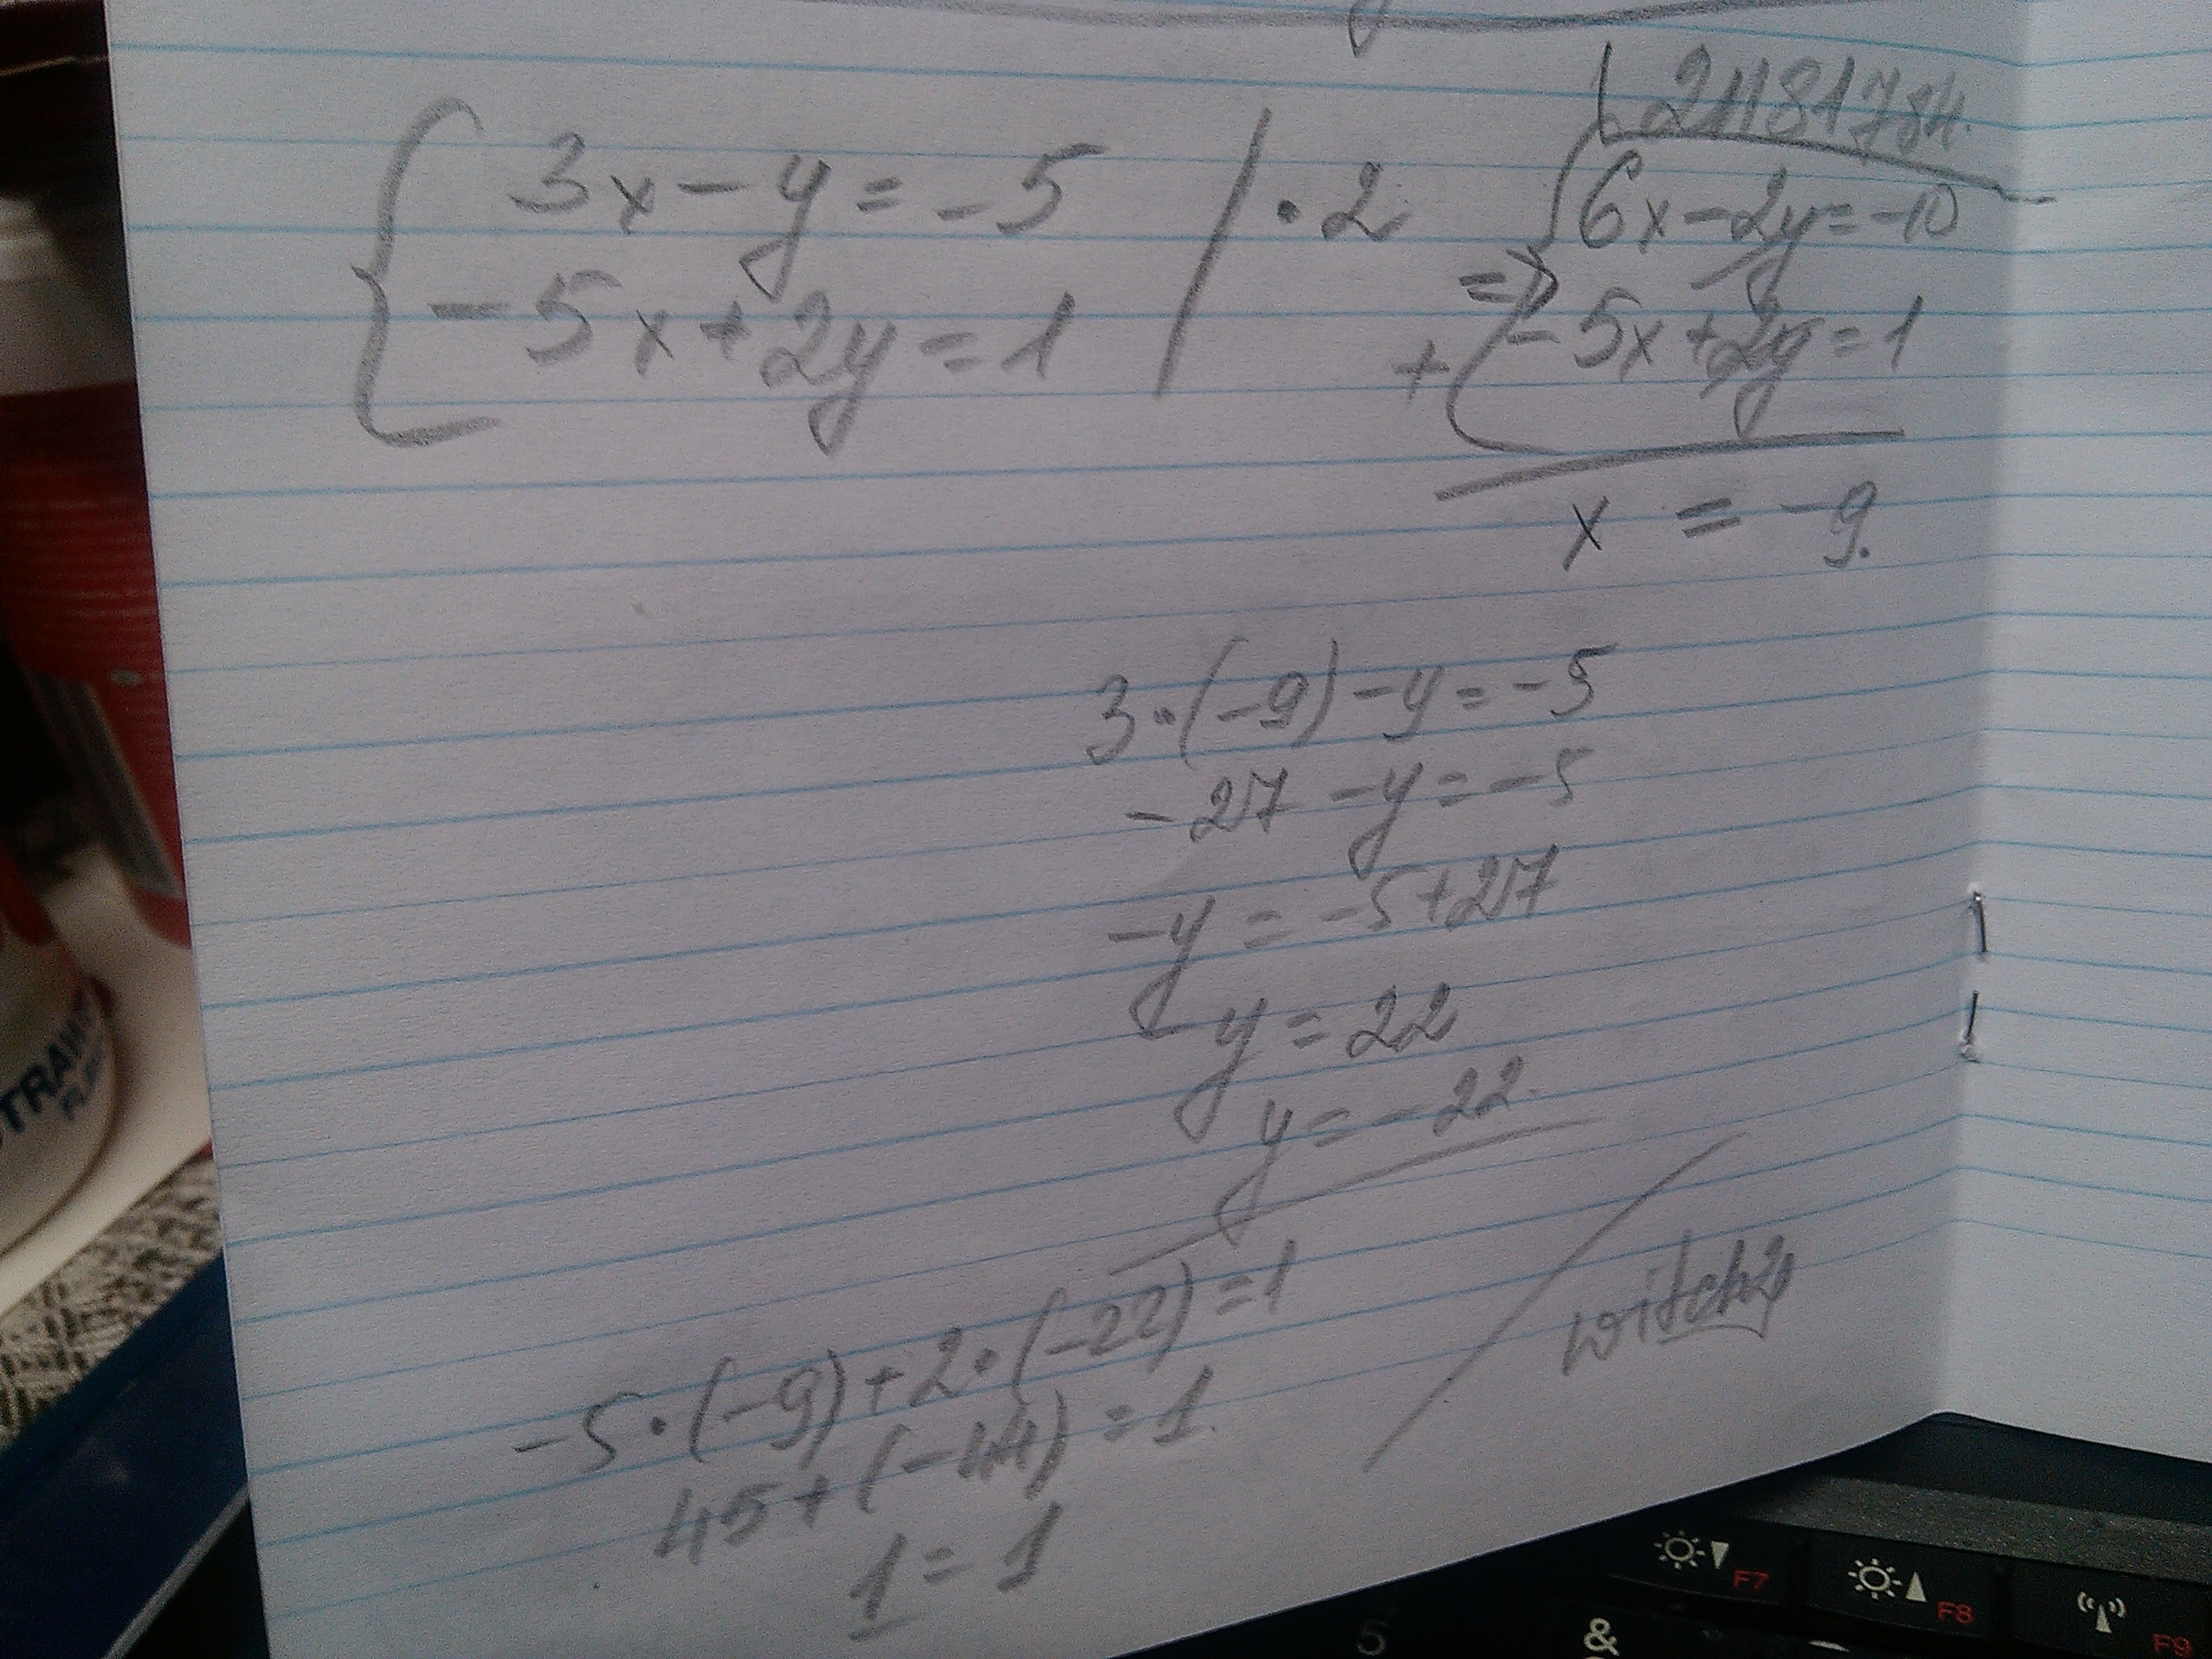 21181784.
3x - y = -5 | · 2
-5x + 2y = 1
=> 6x - 2y = -10
+ -5x + 2y = 1
x = -9.
3·(-9) - y = -5
-27 - y = -5
-y = -5 + 27
-y = 22
y = -22.
-5·(-9) + 2·(-22) = 1
45 + (-44) = 1.
1 = 1
witch2y
F7
F8
F9
5
&